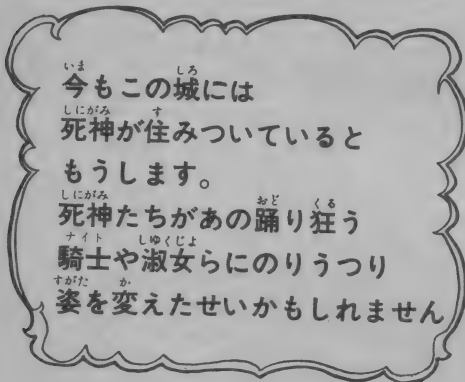 今もこの城には
死神が住みついていると
もうします。
死神たちがあの踊り狂う
騎士や淑女らにのりうつり
姿を変えたせいかもしれません